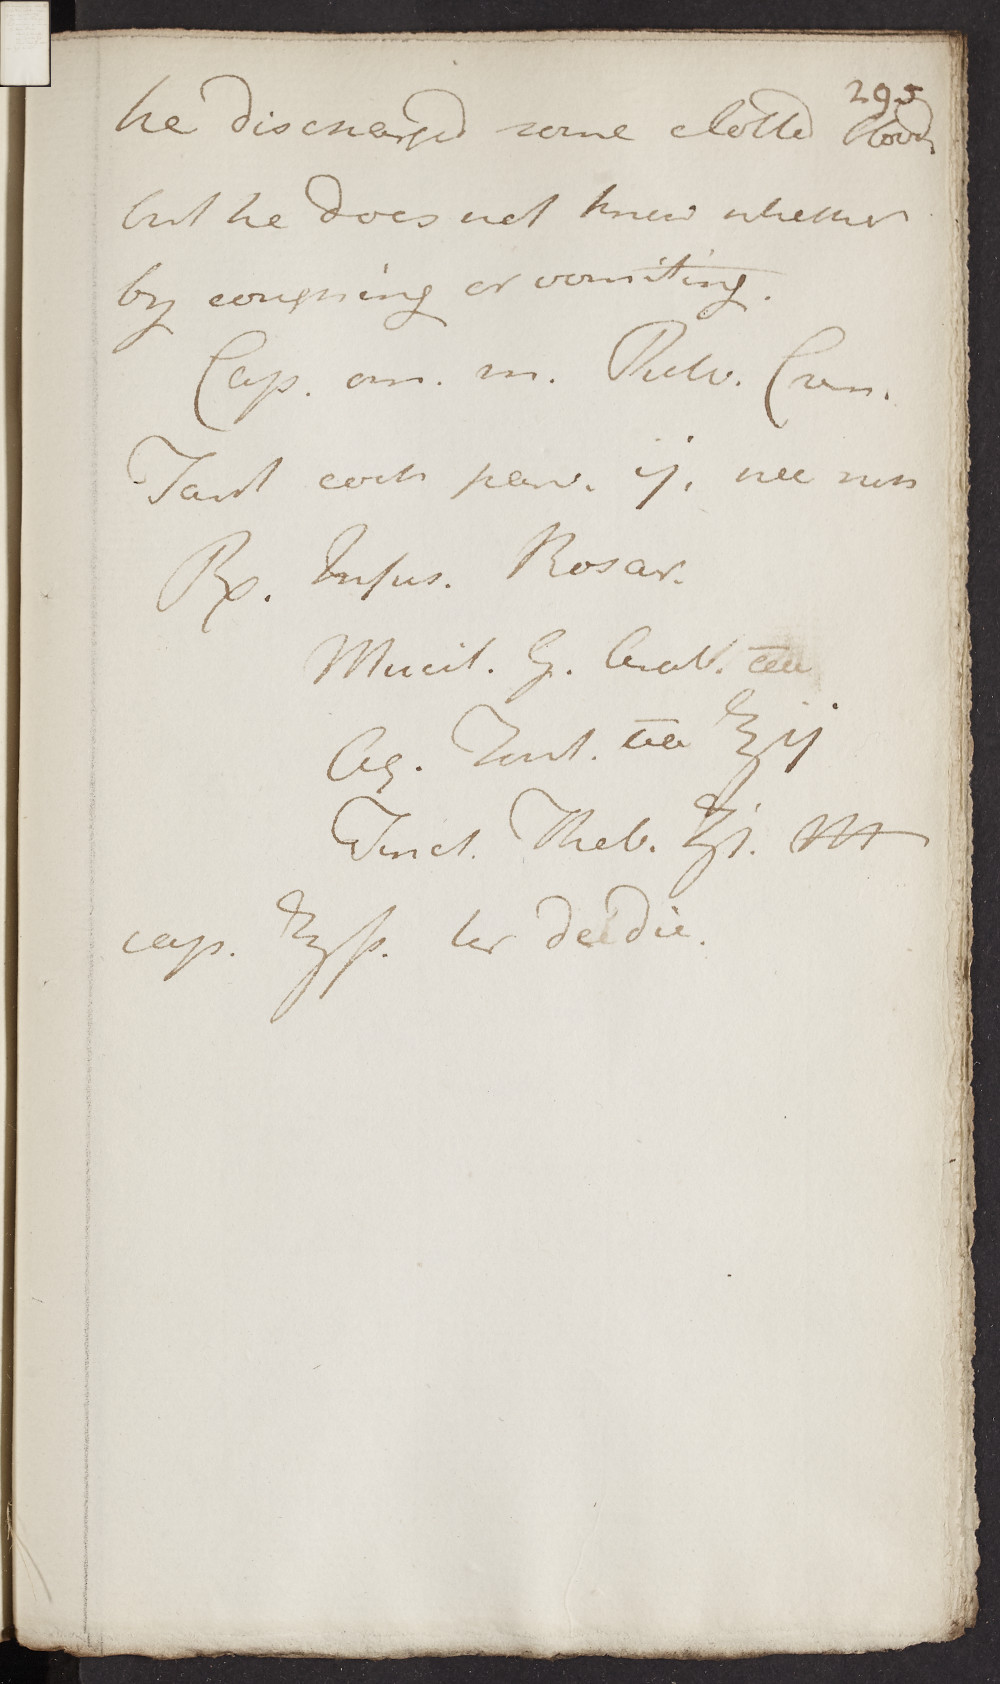 295
he discharged some clotted blood
but he does not know whether
by coughing or vomiting.
Cap. om. m. Pulv. Crem.
Tart coch parv. ij. nec non
Rx. Infus. Rosar.
Mucil. G. Arab. aa
Aq. Font. aa ℥ij
Tinct. Theb. ʒj. M
cap. ℥ß. ter de die.